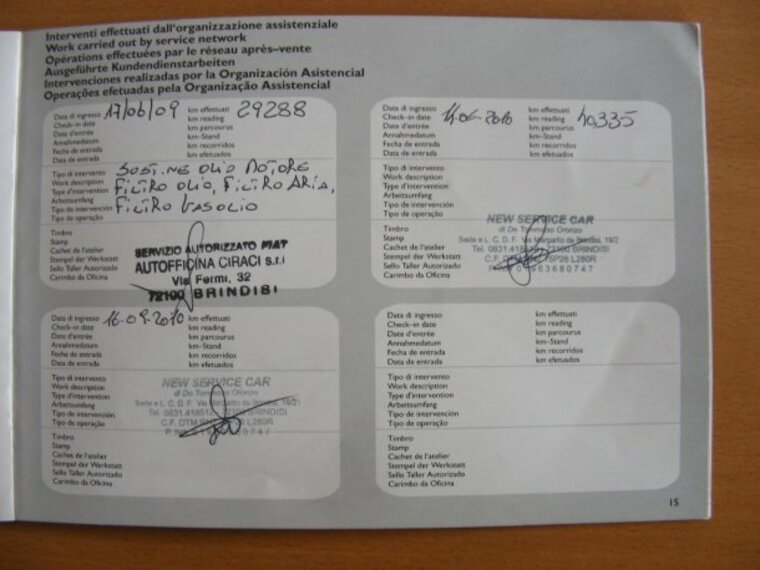 Interventi effettuati dall'organizzazione assistenziale
Work carried out by service network
Opérations effectuées par le réseau après-vente
Ausgeführte Kundendienstarbeiten
Intervenciones realizadas por la Organización Asistencial
Operações efetuadas pela Organização Assistencial
Data di ingresso 17/06/09 km effettuati 29288
Check-in date km reading
Date d'entrée km parcourus
Annahmedatum km-Stand
Fecha de entrada km recorridos
Data de entrada km efetuados
Tipo di intervento SOST.NE OLIO MOTORE
Work description FILTRO OLIO, FILTRO ARIA,
Type d'intervention
Arbeitsumfang
Tipo de intervención FILTRO GASOLIO
Tipo de operação
Timbro
Stamp
Cachet de l'atelier
Stempel der Werkstatt
Sello Taller Autorizado
Carimbo da Oficina
SERVIZIO AUTORIZZATO FIAT
AUTOFFICINA CIRACI s.r.l
Via Fermi, 32
72100 BRINDISI
Data di ingresso km effettuati 40,335
Check-in date km reading
Date d'entrée km parcourus
Annahmedatum km-Stand
Fecha de entrada km recorridos
Data de entrada km efetuados
Tipo di intervento
Work description
Type d'intervention
Arbeitsumfang
Tipo de intervención
Tipo de operação
Timbro
Stamp
Cachet de l'atelier
Stempel der Werkstatt
Sello Taller Autorizado
Carimbo da Oficina
NEW SERVICE CAR
di De Tommaso Oronzo
BRINDISI
Data di ingresso 16-09-2010 km effettuati
Check-in date km reading
Date d'entrée km parcourus
Annahmedatum km-Stand
Fecha de entrada km recorridos
Data de entrada km efetuados
Tipo di intervento
Work description
Type d'intervention
Arbeitsumfang
Tipo de intervención
Tipo de operação
Timbro
Stamp
Cachet de l'atelier
Stempel der Werkstatt
Sello Taller Autorizado
Carimbo da Oficina
NEW SERVICE CAR
di De Tommaso Oronzo
BRINDISI
Data di ingresso km effettuati
Check-in date km reading
Date d'entrée km parcourus
Annahmedatum km-Stand
Fecha de entrada km recorridos
Data de entrada km efetuados
Tipo di intervento
Work description
Type d'intervention
Arbeitsumfang
Tipo de intervención
Tipo de operação
Timbro
Stamp
Cachet de l'atelier
Stempel der Werkstatt
Sello Taller Autorizado
Carimbo da Oficina
15